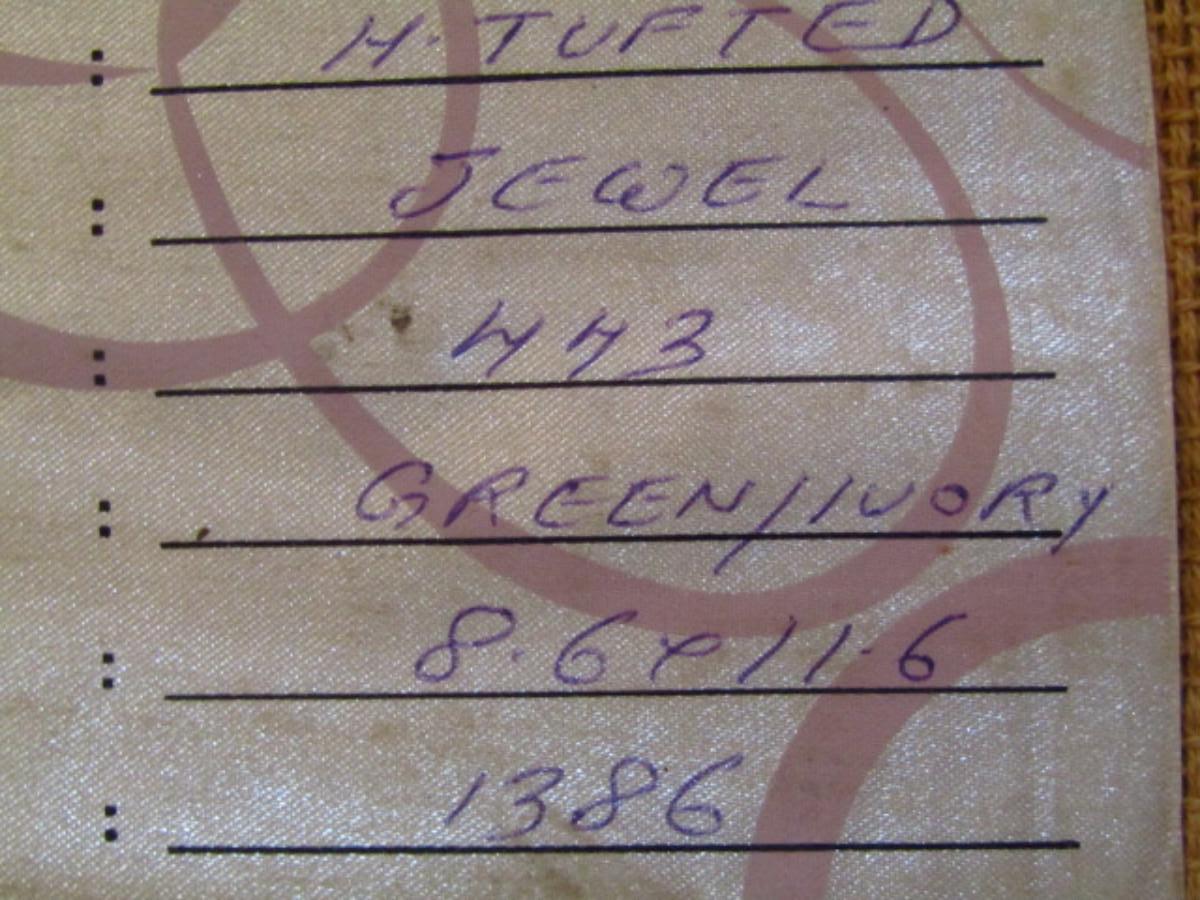 : H.TUFTED
: JEWEL
: 443
: GREEN/IVORY
: 8.6x11.6
: 1386